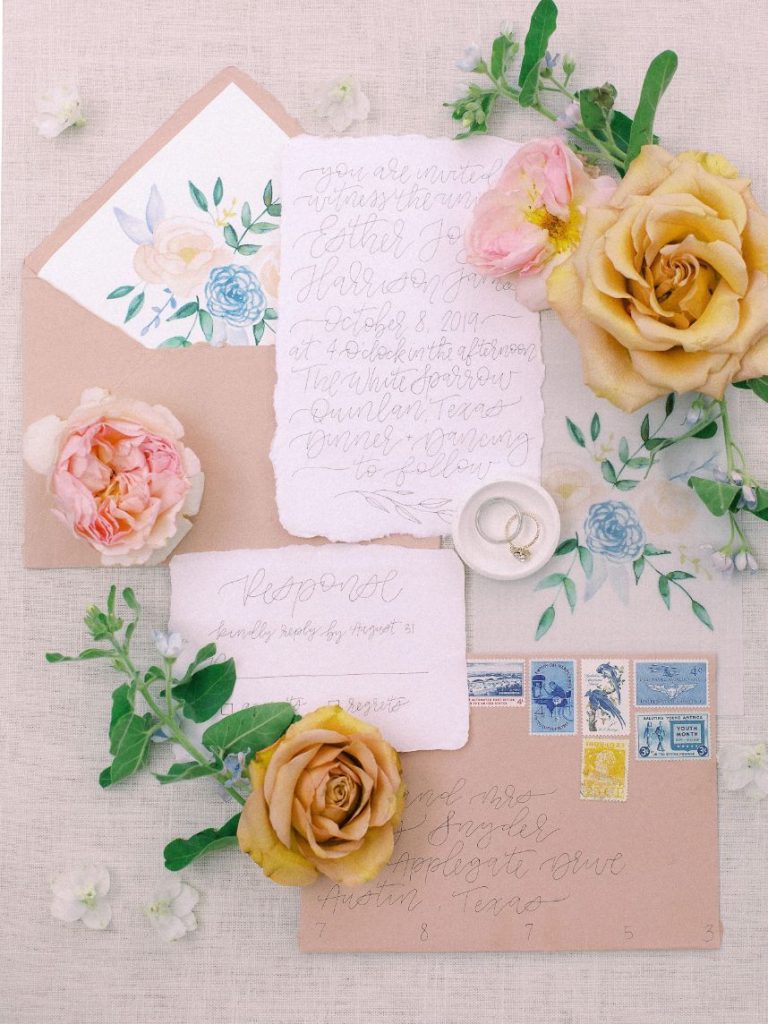 you are invited
witness the
Esther
Harrison
October 8 2019
at 4 o'clock in the afternoon
The White Sparrow
Quinlan, Texas
Dinner + Dancing
to follow
Response
kindly reply by August 31
regrets
4¢
YOUTH
MONTH
3¢
and Mrs
Snyder
Applegate Drive
Austin, Texas
7 8 7 5 3